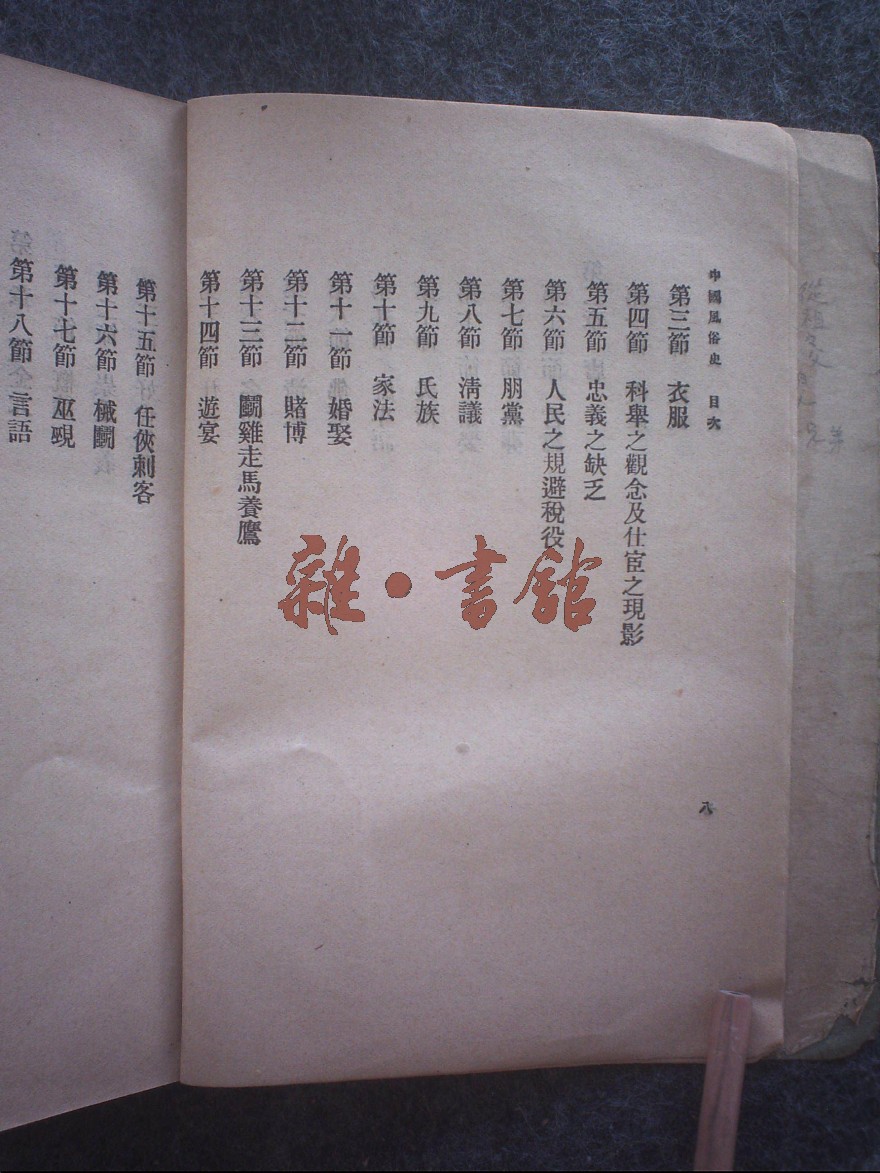 中國風俗史 目次
第三節 衣服
第四節 科舉之觀念及仕宦之現影
第五節 忠義之缺乏
第六節 人民之規避稅役
第七節 朋黨
第八節 淸議
第九節 氏族
第十節 家法
第十一節 婚娶
第十二節 賭博
第十三節 鬭雞走馬養鷹
第十四節 遊宴
八
第十五節 任俠刺客
第十六節 械鬭
第十七節 巫覡
第十八節 言語
雜·書館